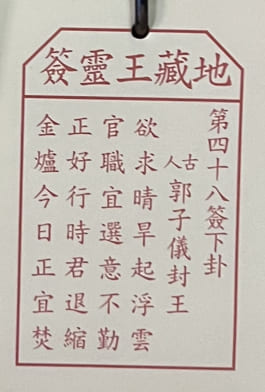 地藏王靈簽
第四十八簽下卦
古人郭子儀封王
欲求晴旱起浮雲
官職宜選意不勤
正好行時君退縮
金爐今日正宜焚